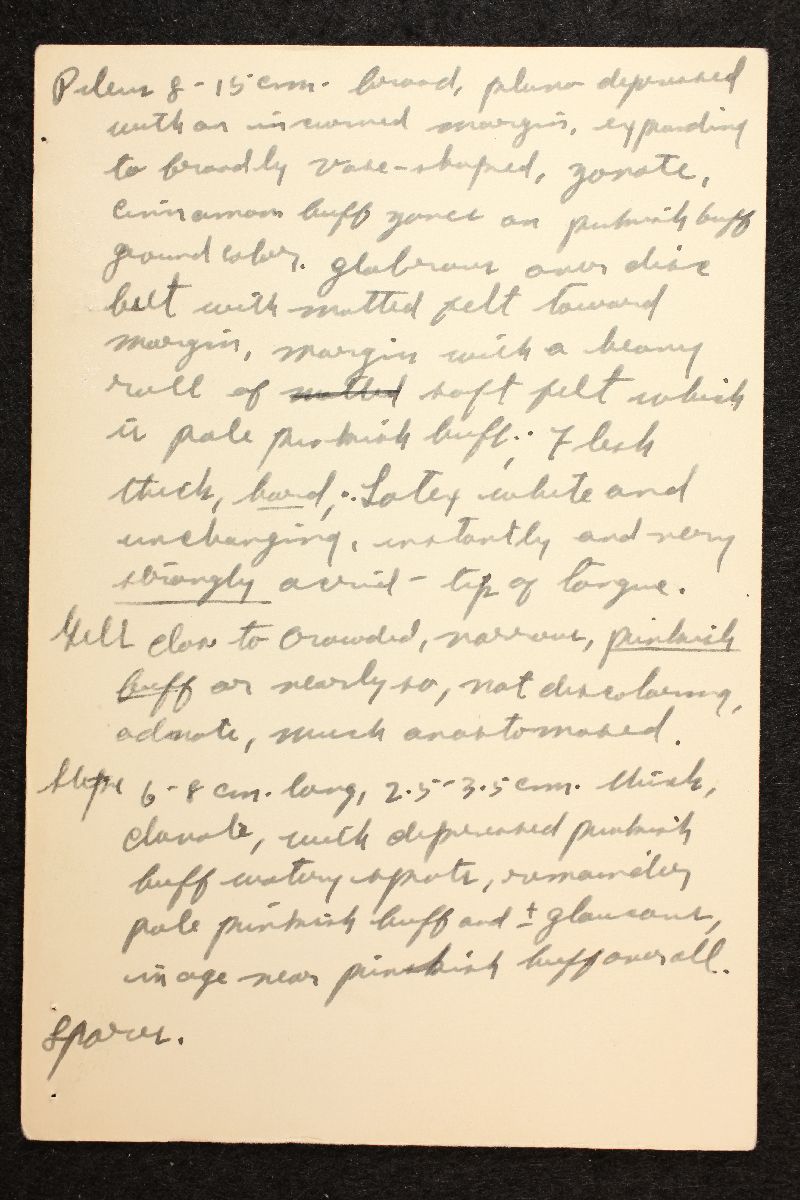 Pileus 8-15 cm. broad, plano depressed
with an incurved margin, expanding
to broadly vase-shaped, zonate,
cinnamon buff zones on pinkish buff
ground color. glabrous over disc
but with matted felt toward
margin, margin with a heavy
roll of matted soft felt which
is pale pinkish buff; Flesh
thick, hard; Latex white and
unchanging, instantly and very
strongly acrid - tip of tongue.
Gills close to crowded, narrow, pinkish
buff or nearly so, not discoloring,
adnate, much anastomosed.
Stipe 6-8 cm. long, 2.5-3.5 cm. thick,
clavate, with depressed pinkish
buff watery spots, remainder
pale pinkish buff and ± glaucous,
in age near pinkish buff overall.
Spores.